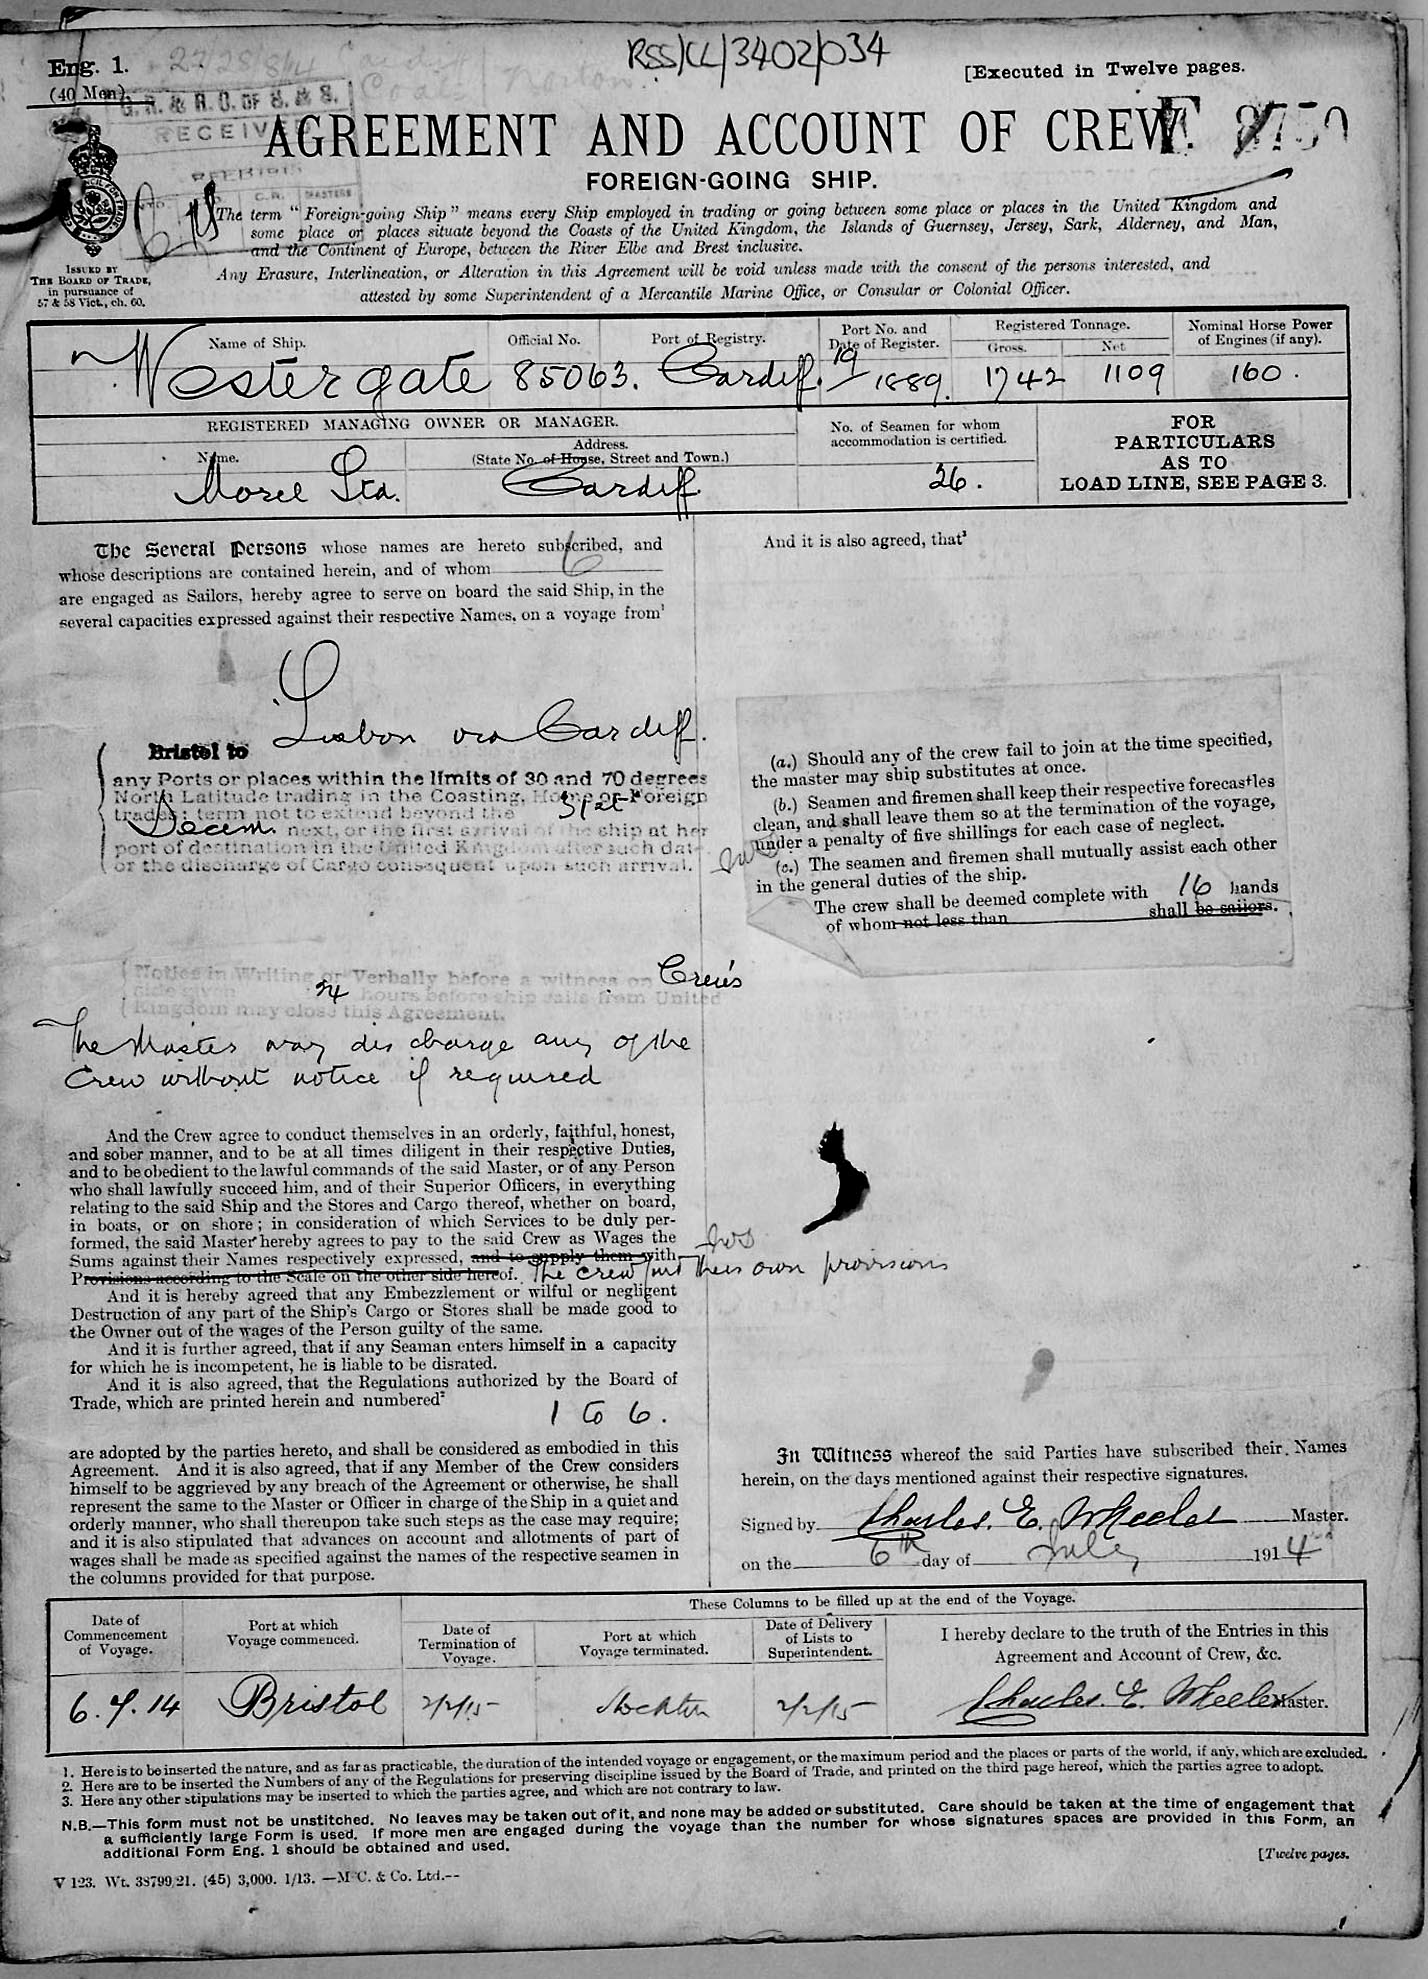 RSS/CL/3402/034
Eng. 1.
(40 Men)
27/28/8/14
[Executed in Twelve pages.
G. R. & R. O. OF S. & S.
RECEIVED
AGREEMENT AND ACCOUNT OF CREW.
FOREIGN-GOING SHIP.
C.R. MASTERS
The term "Foreign-going Ship" means every Ship employed in trading or going between some place or places in the United Kingdom and
some place or places situate beyond the Coasts of the United Kingdom, the Islands of Guernsey, Jersey, Sark, Alderney, and Man,
and the Continent of Europe, between the River Elbe and Brest inclusive.
Any Erasure, Interlineation, or Alteration in this Agreement will be void unless made with the consent of the persons interested, and
attested by some Superintendent of a Mercantile Marine Office, or Consular or Colonial Officer.
ISSUED BY
THE BOARD OF TRADE,
in pursuance of
57 & 58 Vict., ch. 60.
Name of Ship. Official No. Port of Registry. Port No. and Date of Register. Registered Tonnage. Gross. Net Nominal Horse Power of Engines (if any).
Westergate 85063. Cardiff. 19/1889. 1742 1109 160.
REGISTERED MANAGING OWNER OR MANAGER.
Name. Address. (State No. of House, Street and Town.)
No. of Seamen for whom accommodation is certified.
Morel Ltd. Cardiff 26.
FOR
PARTICULARS
AS TO
LOAD LINE, SEE PAGE 3.
The Several Persons whose names are hereto subscribed, and
whose descriptions are contained herein, and of whom 6
are engaged as Sailors, hereby agree to serve on board the said Ship, in the
several capacities expressed against their respective Names, on a voyage from¹
Bristol to Lisbon via Cardiff.
any Ports or places within the limits of 30 and 70 degrees
North Latitude trading in the Coasting, Home or Foreign
trades; term not to extend beyond the 31st
Decem. next, or the first arrival of the ship at her
port of destination in the United Kingdom after such date
or the discharge of Cargo consequent upon such arrival.
Notice in Writing or Verbally before a witness on Crew's
side given 24 hours before ship sails from United
Kingdom may close this Agreement.
The Master may discharge any of the
Crew without notice if required
And the Crew agree to conduct themselves in an orderly, faithful, honest,
and sober manner, and to be at all times diligent in their respective Duties,
and to be obedient to the lawful commands of the said Master, or of any Person
who shall lawfully succeed him, and of their Superior Officers, in everything
relating to the said Ship and the Stores and Cargo thereof, whether on board,
in boats, or on shore; in consideration of which Services to be duly per-
formed, the said Master hereby agrees to pay to the said Crew as Wages the
Sums against their Names respectively expressed, and to supply them with
Provisions according to the Scale on the other side hereof. The crew find their own provisions
And it is hereby agreed that any Embezzlement or wilful or negligent
Destruction of any part of the Ship's Cargo or Stores shall be made good to
the Owner out of the wages of the Person guilty of the same.
And it is further agreed, that if any Seaman enters himself in a capacity
for which he is incompetent, he is liable to be disrated.
And it is also agreed, that the Regulations authorized by the Board of
Trade, which are printed herein and numbered²
1 to 6.
are adopted by the parties hereto, and shall be considered as embodied in this
Agreement. And it is also agreed, that if any Member of the Crew considers
himself to be aggrieved by any breach of the Agreement or otherwise, he shall
represent the same to the Master or Officer in charge of the Ship in a quiet and
orderly manner, who shall thereupon take such steps as the case may require;
and it is also stipulated that advances on account and allotments of part of
wages shall be made as specified against the names of the respective seamen in
the columns provided for that purpose.
And it is also agreed, that³
(a.) Should any of the crew fail to join at the time specified,
the master may ship substitutes at once.
(b.) Seamen and firemen shall keep their respective forecastles
clean, and shall leave them so at the termination of the voyage,
under a penalty of five shillings for each case of neglect.
(c.) The seamen and firemen shall mutually assist each other
in the general duties of the ship.
The crew shall be deemed complete with 16 hands
of whom not less than shall be sailors.
In Witness whereof the said Parties have subscribed their Names
herein, on the days mentioned against their respective signatures.
Signed by Charles. E. Wheeler Master.
on the 6th day of July 1914
These Columns to be filled up at the end of the Voyage.
Date of Commencement of Voyage. Port at which Voyage commenced. Date of Termination of Voyage. Port at which Voyage terminated. Date of Delivery of Lists to Superintendent. I hereby declare to the truth of the Entries in this Agreement and Account of Crew, &c.
6.7.14 Bristol 2/2/15 Stockton 2/2/15 Charles. E. Wheeler Master.
1. Here is to be inserted the nature, and as far as practicable, the duration of the intended voyage or engagement, or the maximum period and the places or parts of the world, if any, which are excluded.
2. Here are to be inserted the Numbers of any of the Regulations for preserving discipline issued by the Board of Trade, and printed on the third page hereof, which the parties agree to adopt.
3. Here any other stipulations may be inserted to which the parties agree, and which are not contrary to law.
N.B.—This form must not be unstitched. No leaves may be taken out of it, and none may be added or substituted. Care should be taken at the time of engagement that
a sufficiently large Form is used. If more men are engaged during the voyage than the number for whose signatures spaces are provided in this Form, an
additional Form Eng. 1 should be obtained and used.
[Twelve pages.
V 123. Wt. 38799/21. (45) 3,000. 1/13. —M'C. & Co. Ltd.--